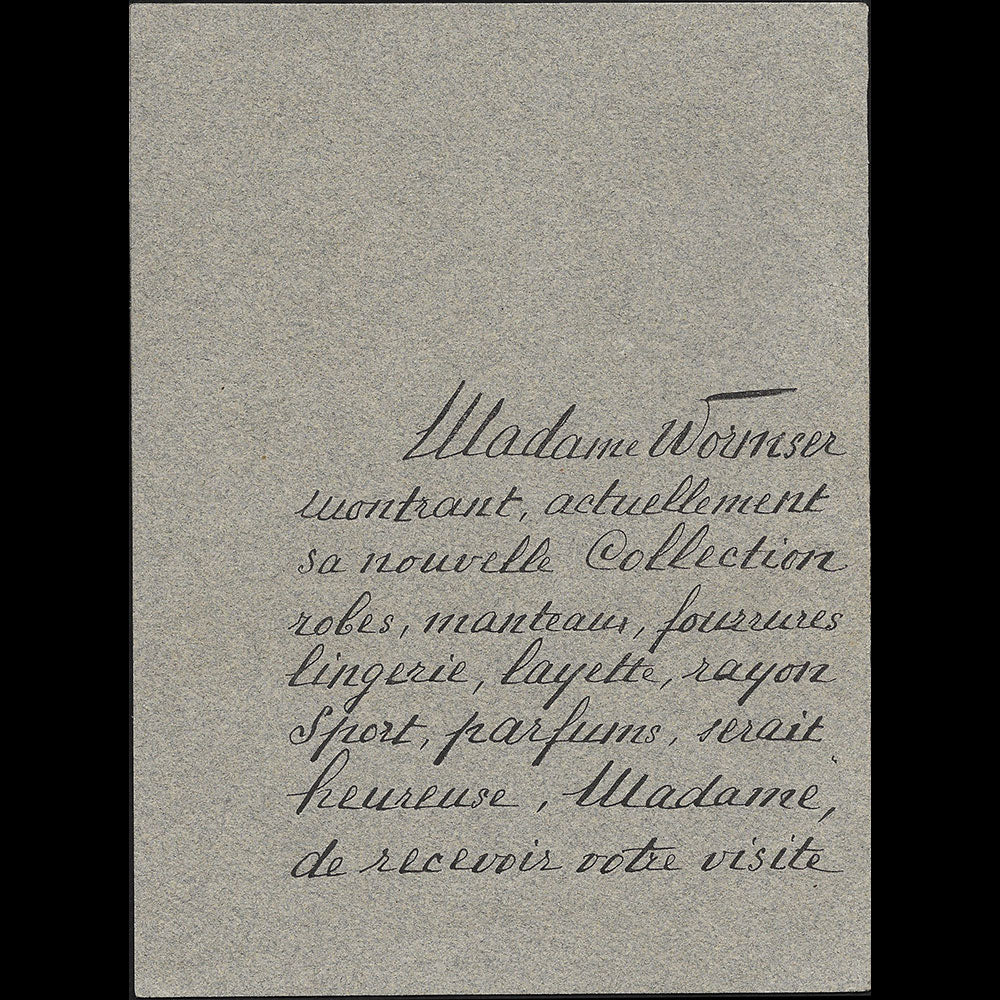 Madame Wormser
montrant, actuellement
sa nouvelle Collection
robes, manteaux, fourrures
lingerie, layette, rayon
Sport, parfums, serait
heureuse, Madame,
de recevoir votre visite